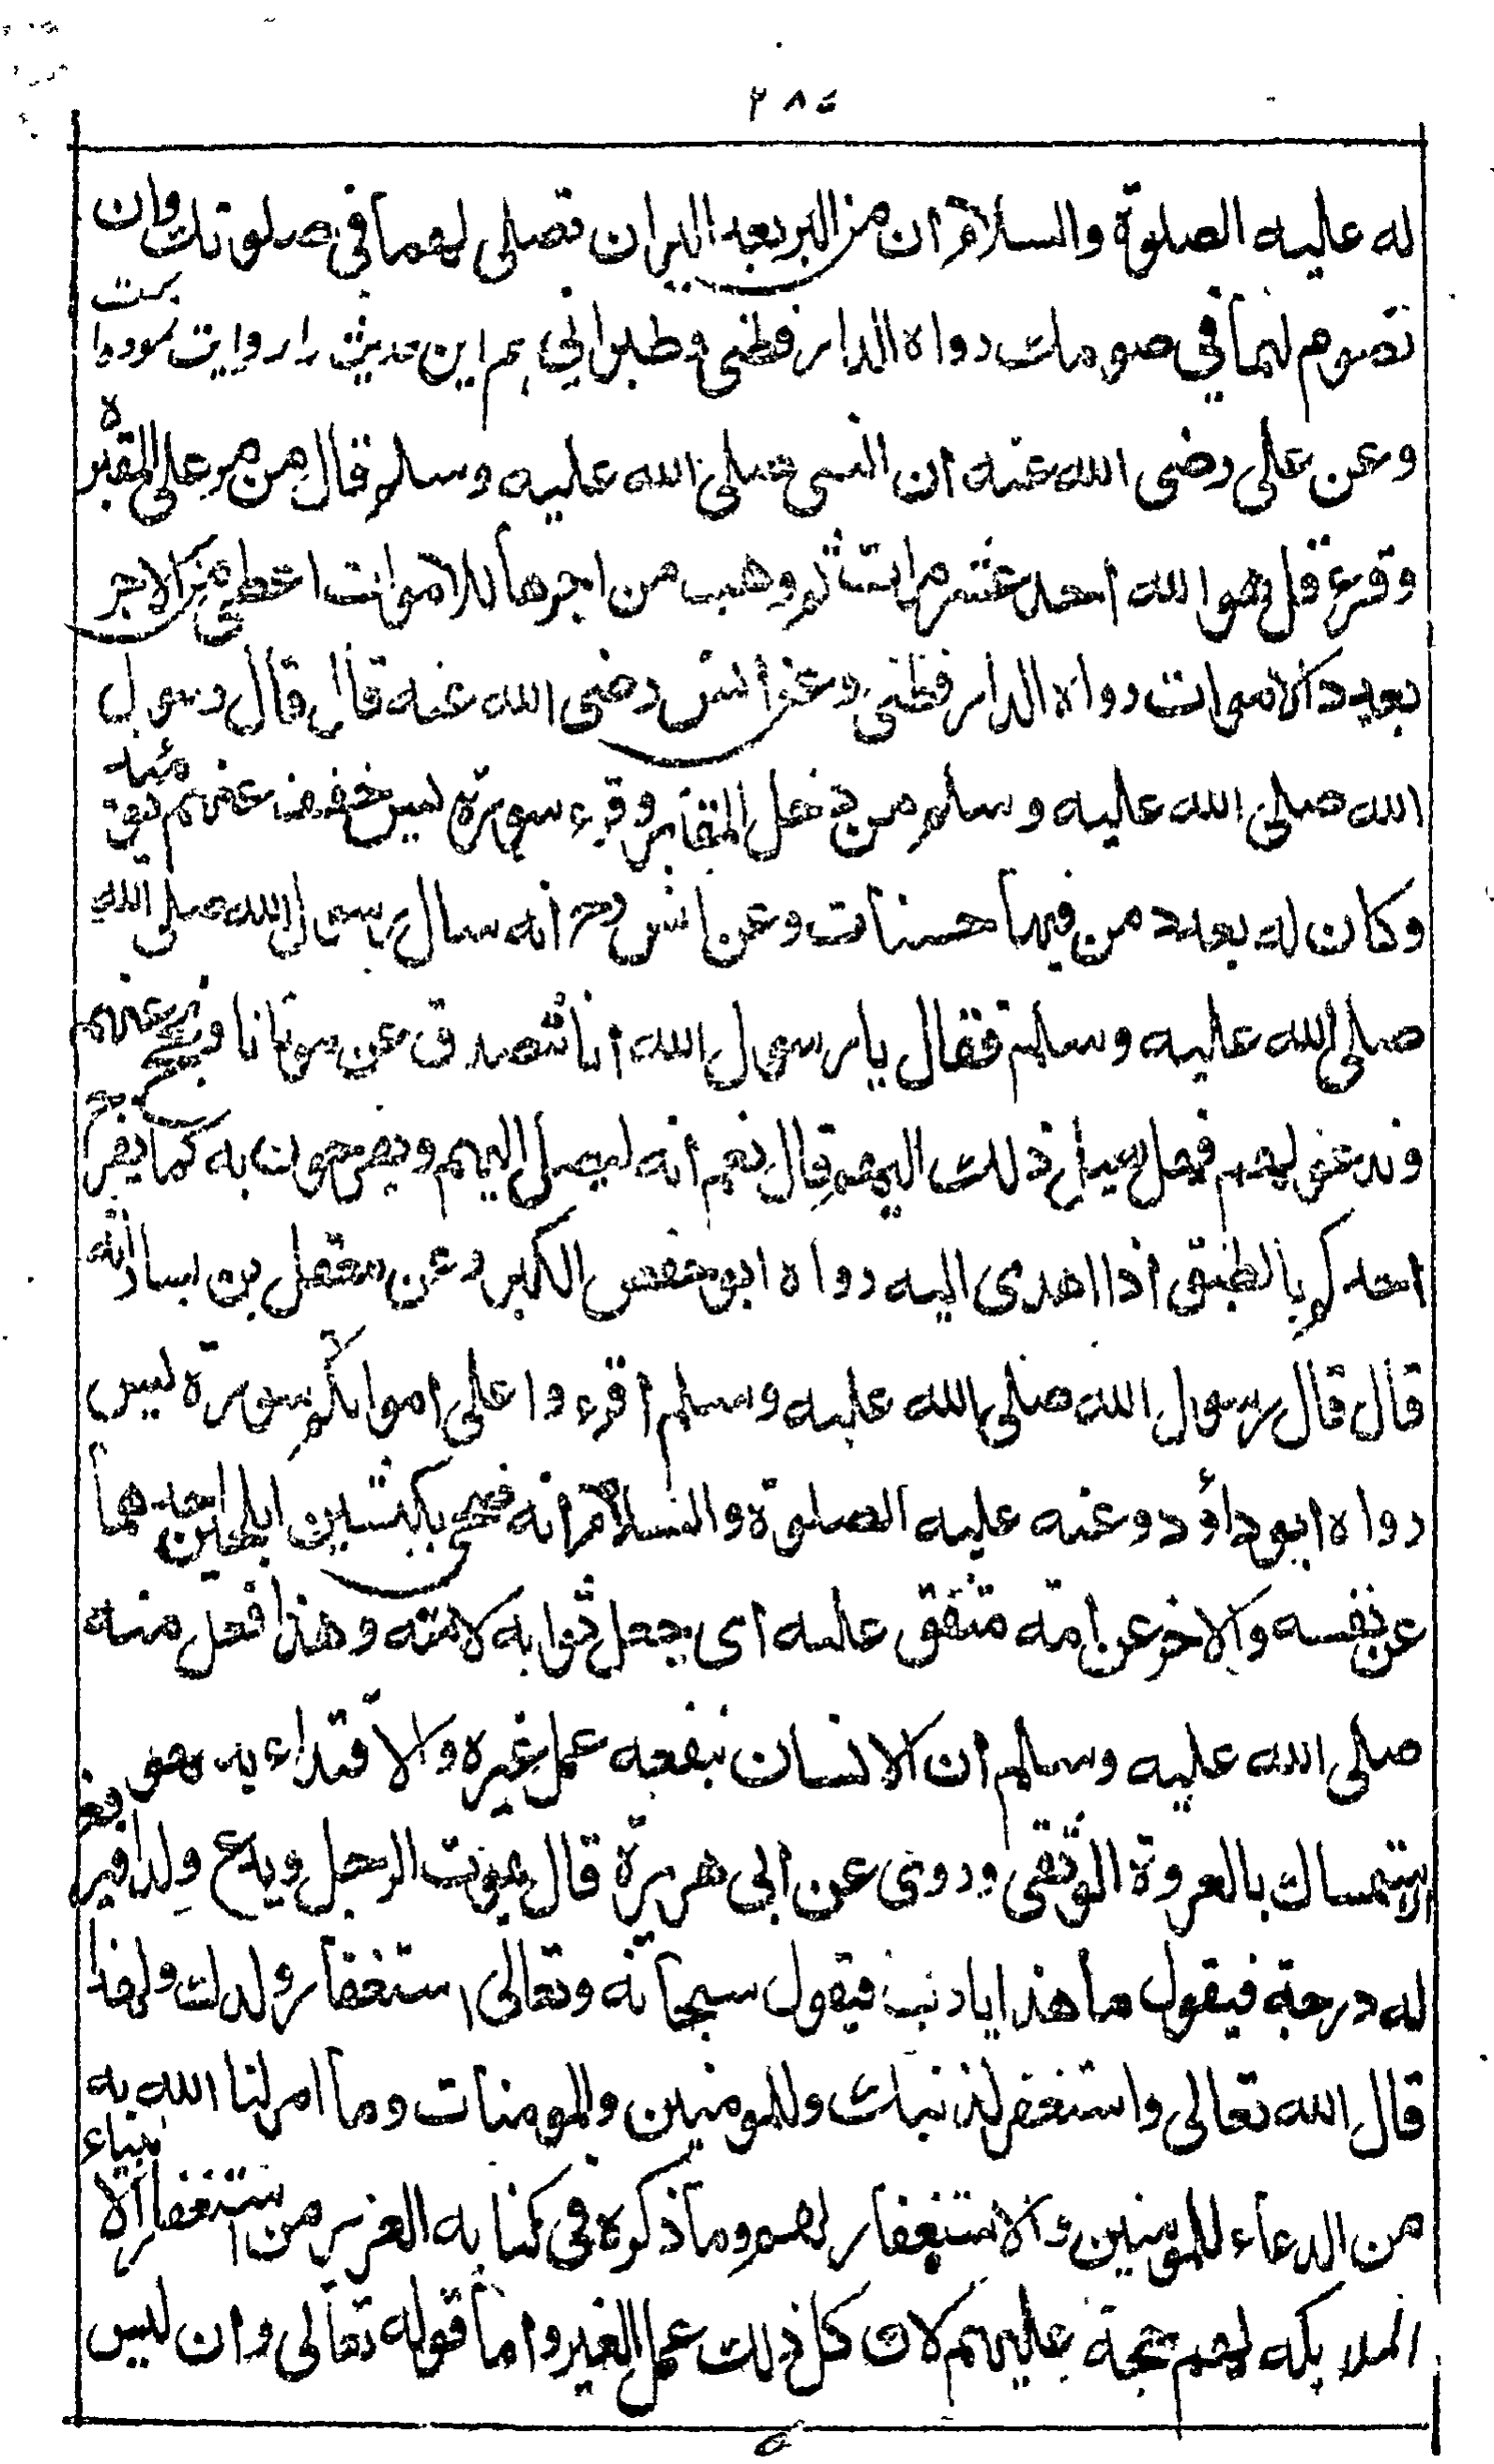 ٢٨٤
له عليه الصلوة والسلام ان من البر بعد البران تصلى لهما فى صلوتك وان
تصوم لهما في صومك رواه الدار قطنى وطبراني هم این حدیث را روایت نموده است
وعن على رضى الله عنه ان النبى صلى الله عليه وسلم قال من مر على المقبرة
وقرء قل هو الله احد عشر مرات ثم وهب من اجرها للاموات اعطى من الاجر
بعدد الاموات رواه الدار قطنى وعن انس رضى الله عنه قال قال رسول
الله صلى الله عليه وسلم من دخل المقابر وقرء سورة يس خفف عنهم يومئذ
وكان له بعدد من فيها حسنات وعن انس رح انه سال رسول الله صلى الله
صلى الله عليه وسلم فقال يا رسول الله انا نتصدق عن موتانا ونحج عنهم
وندعو لهم فهل يصل ذلك اليهم قال نعم انه ليصل اليهم ويفرحون به كما يفرح
احدكم بالطبق اذا اهدى اليه رواه ابو حفص الكبير وعن معقل بن يسار انه
قال قال رسول الله صلى الله عليه وسلم اقرءوا على امواتكم سورة يس
رواه ابو داؤد وعنه عليه الصلوة والسلام انه ضحى بكبشين املحين احدهما
عن نفسه والاخر عن امته متفق عليه اى جعل ثوابه لامته وهذا فعل منه
صلى الله عليه وسلم ان الانسان ينفعه عمل غيره والاقتداء به هو
الاستمساك بالعروة الوثقى وروى عن ابى هريرة قال يموت الرجل ويدع ولدا فيرفع
له درجة فيقول ما هذا يا رب فيقول سبحانه وتعالى استغفار ولدك ولهذا
قال الله تعالى واستغفر لذنبك وللمومنين والمومنات وما امرنا الله به
من الدعاء للمومنين والاستغفار لهم وما ذكره فى كتابه العزيز من استغفار الانبياء
الملايكه لهم حجة عليهم لان كل ذلك عمل الغير واما قوله تعالى وان ليس